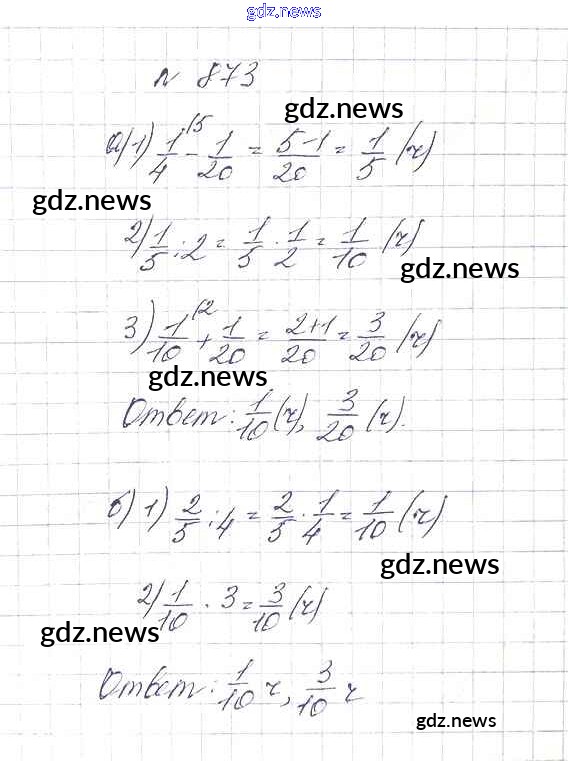 gdz.news
№ 873
gdz.news
а) 1) 1/4 (5 - 1/20 = 5-1/20 = 1/5 (ч)
gdz.news
2) 1/5 : 2 = 1/5 · 1/2 = 1/10 (ч)
gdz.news
3) 1/10 (2 + 1/20 = 2+1/20 = 3/20 (ч)
gdz.news
Ответ: 1/10 (ч), 3/20 (ч).
б) 1) 2/5 : 4 = 2/5 · 1/4 = 1/10 (ч)
gdz.news
2) 1/10 · 3 = 3/10 (ч)
gdz.news
Ответ: 1/10 ч, 3/10 ч
gdz.news